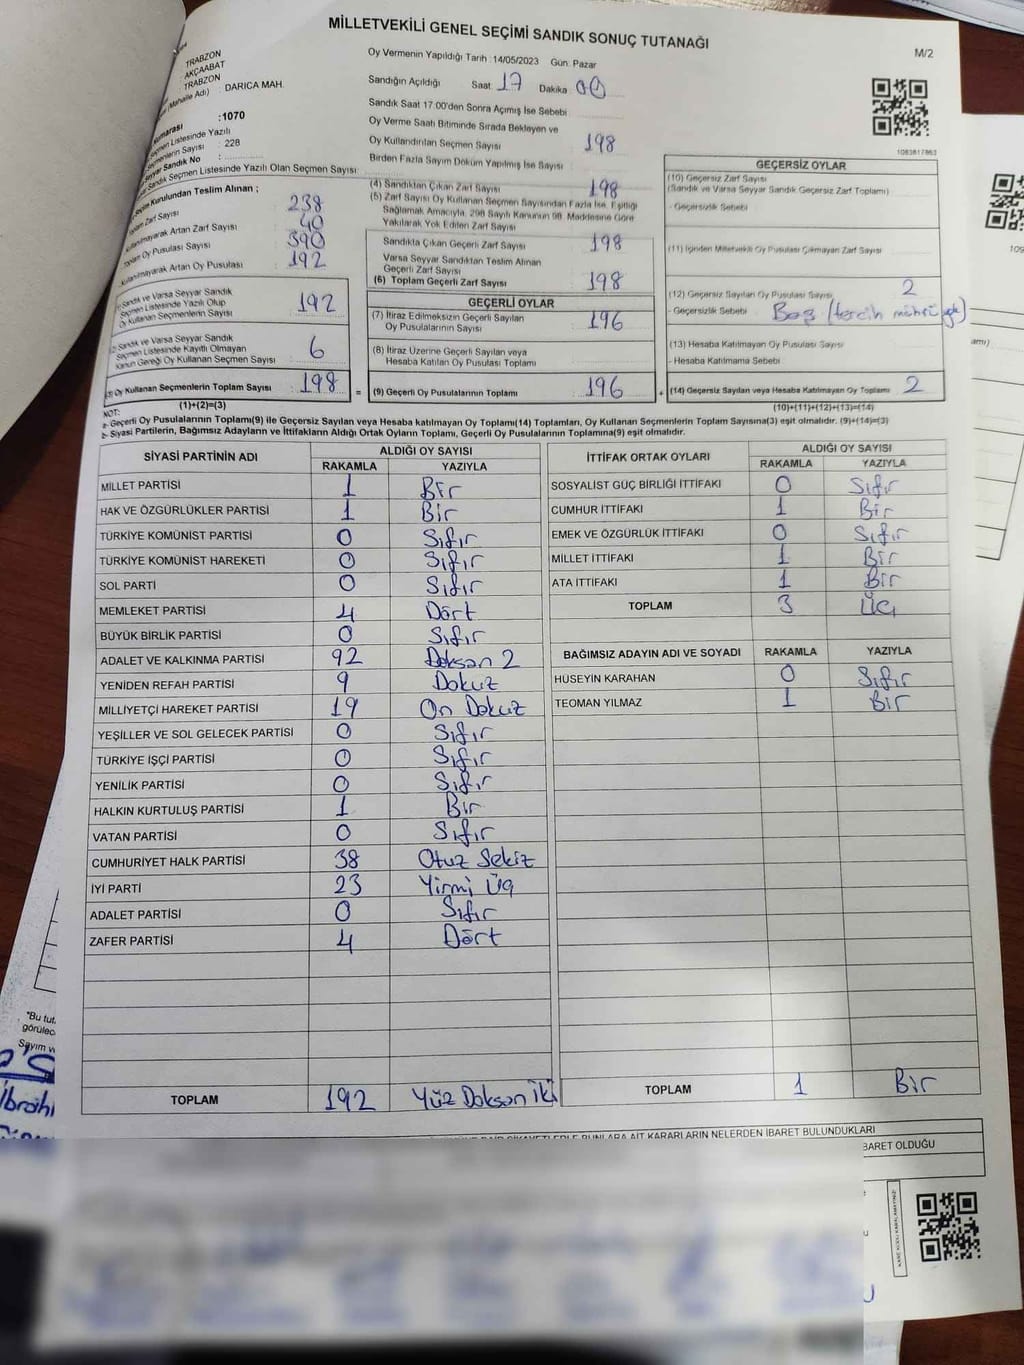 MİLLETVEKİLİ GENEL SEÇİMİ SANDIK SONUÇ TUTANAĞI
M/2
TRABZON
AKÇAABAT
TRABZON
(Mahalle Adı) : DARICA MAH.
:1070
Seçmen Listesinde Yazılı
Seçmenlerin Sayısı : 228
Seyyar Sandık No :
Sandık Seçmen Listesinde Yazılı Olan Seçmen Sayısı:
Oy Vermenin Yapıldığı Tarih :14/05/2023 Gün: Pazar
Sandığın Açıldığı Saat 17 Dakika 00
Sandık Saat 17.00'den Sonra Açımış İse Sebebi
Oy Verme Saati Bitiminde Sırada Bekleyen ve
Oy Kullandırılan Seçmen Sayısı 198
Birden Fazla Sayım Döküm Yapılmış İse Sayısı
1083817863
Seçim Kurulundan Teslim Alınan ;
Toplam Zarf Sayısı 238
Kullanılmayarak Artan Zarf Sayısı 40
Toplam Oy Pusulası Sayısı 390
Kullanılmayarak Artan Oy Pusulası 192
Sandık ve Varsa Seyyar Sandık
Seçmen Listesinde Yazılı Olup
Oy Kullanan Seçmenlerin Sayısı 192
Sandık ve Varsa Seyyar Sandık
Seçmen Listesinde Kayıtlı Olmayan
Kanun Gereği Oy Kullanan Seçmen Sayısı 6
(3) Oy Kullanan Seçmenlerin Toplam Sayısı : 198
(1)+(2)=(3)
(4) Sandıktan Çıkan Zarf Sayısı 198
(5) Zarf Sayısı Oy Kullanan Seçmen Sayısından Fazla İse, Eşitliği
Sağlamak Amacıyla, 298 Sayılı Kanunun 98. Maddesine Göre
Yakılarak Yok Edilen Zarf Sayısı
Sandıkta Çıkan Geçerli Zarf Sayısı 198
Varsa Seyyar Sandıktan Teslim Alınan
Geçerli Zarf Sayısı
(6) Toplam Geçerli Zarf Sayısı 198
GEÇERLİ OYLAR
(7) İtiraz Edilmeksizin Geçerli Sayılan
Oy Pusulalarının Sayısı 196
(8) İtiraz Üzerine Geçerli Sayılan veya
Hesaba Katılan Oy Pusulası Toplamı
= (9) Geçerli Oy Pusulalarının Toplamı 196
GEÇERSİZ OYLAR
(10) Geçersiz Zarf Sayısı
(Sandık ve Varsa Seyyar Sandık Geçersiz Zarf Toplamı)
- Geçersizlik Sebebi
(11) İçinden Milletvekili Oy Pusulası Çıkmayan Zarf Sayısı
(12) Geçersiz Sayılan Oy Pusulası Sayısı 2
- Geçersizlik Sebebi Boş (tercih mührü yok)
(13) Hesaba Katılmayan Oy Pusulası Sayısı
- Hesaba Katılmama Sebebi
+ (14) Geçersiz Sayılan veya Hesaba Katılmayan Oy Toplamı 2
(10)+(11)+(12)+(13)=(14)
NOT:
a- Geçerli Oy Pusulalarının Toplamı(9) ile Geçersiz Sayılan veya Hesaba katılmayan Oy Toplamı(14) Toplamları, Oy Kullanan Seçmenlerin Toplam Sayısına(3) eşit olmalıdır. (9)+(14)=(3)
b- Siyasi Partilerin, Bağımsız Adayların ve İttifakların Aldığı Ortak Oyların Toplamı, Geçerli Oy Pusulalarının Toplamına(9) eşit olmalıdır.
SİYASİ PARTİNİN ADI ALDIĞI OY SAYISI
RAKAMLA YAZIYLA
MİLLET PARTİSİ 1 Bir
HAK VE ÖZGÜRLÜKLER PARTİSİ 1 Bir
TÜRKİYE KOMÜNİST PARTİSİ 0 Sıfır
TÜRKİYE KOMÜNİST HAREKETİ 0 Sıfır
SOL PARTİ 0 Sıfır
MEMLEKET PARTİSİ 4 Dört
BÜYÜK BİRLİK PARTİSİ 0 Sıfır
ADALET VE KALKINMA PARTİSİ 92 Doksan 2
YENİDEN REFAH PARTİSİ 9 Dokuz
MİLLİYETÇİ HAREKET PARTİSİ 19 On Dokuz
YEŞİLLER VE SOL GELECEK PARTİSİ 0 Sıfır
TÜRKİYE İŞÇİ PARTİSİ 0 Sıfır
YENİLİK PARTİSİ 0 Sıfır
HALKIN KURTULUŞ PARTİSİ 1 Bir
VATAN PARTİSİ 0 Sıfır
CUMHURİYET HALK PARTİSİ 38 Otuz Sekiz
İYİ PARTİ 23 Yirmi Üç
ADALET PARTİSİ 0 Sıfır
ZAFER PARTİSİ 4 Dört
TOPLAM 192 Yüz Doksan İki
İTTİFAK ORTAK OYLARI ALDIĞI OY SAYISI
RAKAMLA YAZIYLA
SOSYALİST GÜÇ BİRLİĞİ İTTİFAKI 0 Sıfır
CUMHUR İTTİFAKI 1 Bir
EMEK VE ÖZGÜRLÜK İTTİFAKI 0 Sıfır
MİLLET İTTİFAKI 1 Bir
ATA İTTİFAKI 1 Bir
TOPLAM 3 Üç
BAĞIMSIZ ADAYIN ADI VE SOYADI RAKAMLA YAZIYLA
HÜSEYİN KARAHAN 0 Sıfır
TEOMAN YILMAZ 1 Bir
TOPLAM 1 Bir
KARARLARIN NELERDEN İBARET BULUNDUKLARI
BARET OLDUĞU
"Bu tut
görülec
Sayım v
İbrahi